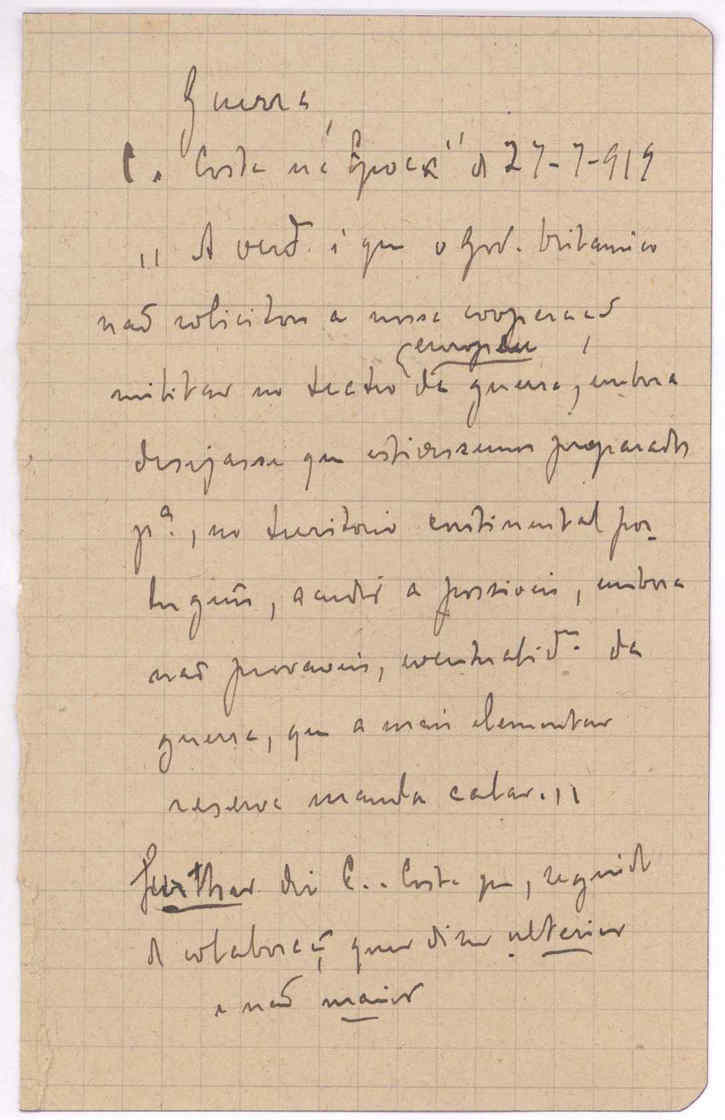 Guerra
C. Costa na "Epoca" de 27-7-919
"A verd. é que o Gov. britanico
não solicitou a nossa cooperação
europeu
militar no teatro da guerra, embora
desejasse que estivessemos preparados
pª., no territorio continental por-
tuguês, acudir a possiveis, embora
não provaveis, eventualid. da
guerra, que a mais elementar
reserva manda calar."
further diz C. Costa que, seguido
de colaboração quer dizer ulterior
e não maior